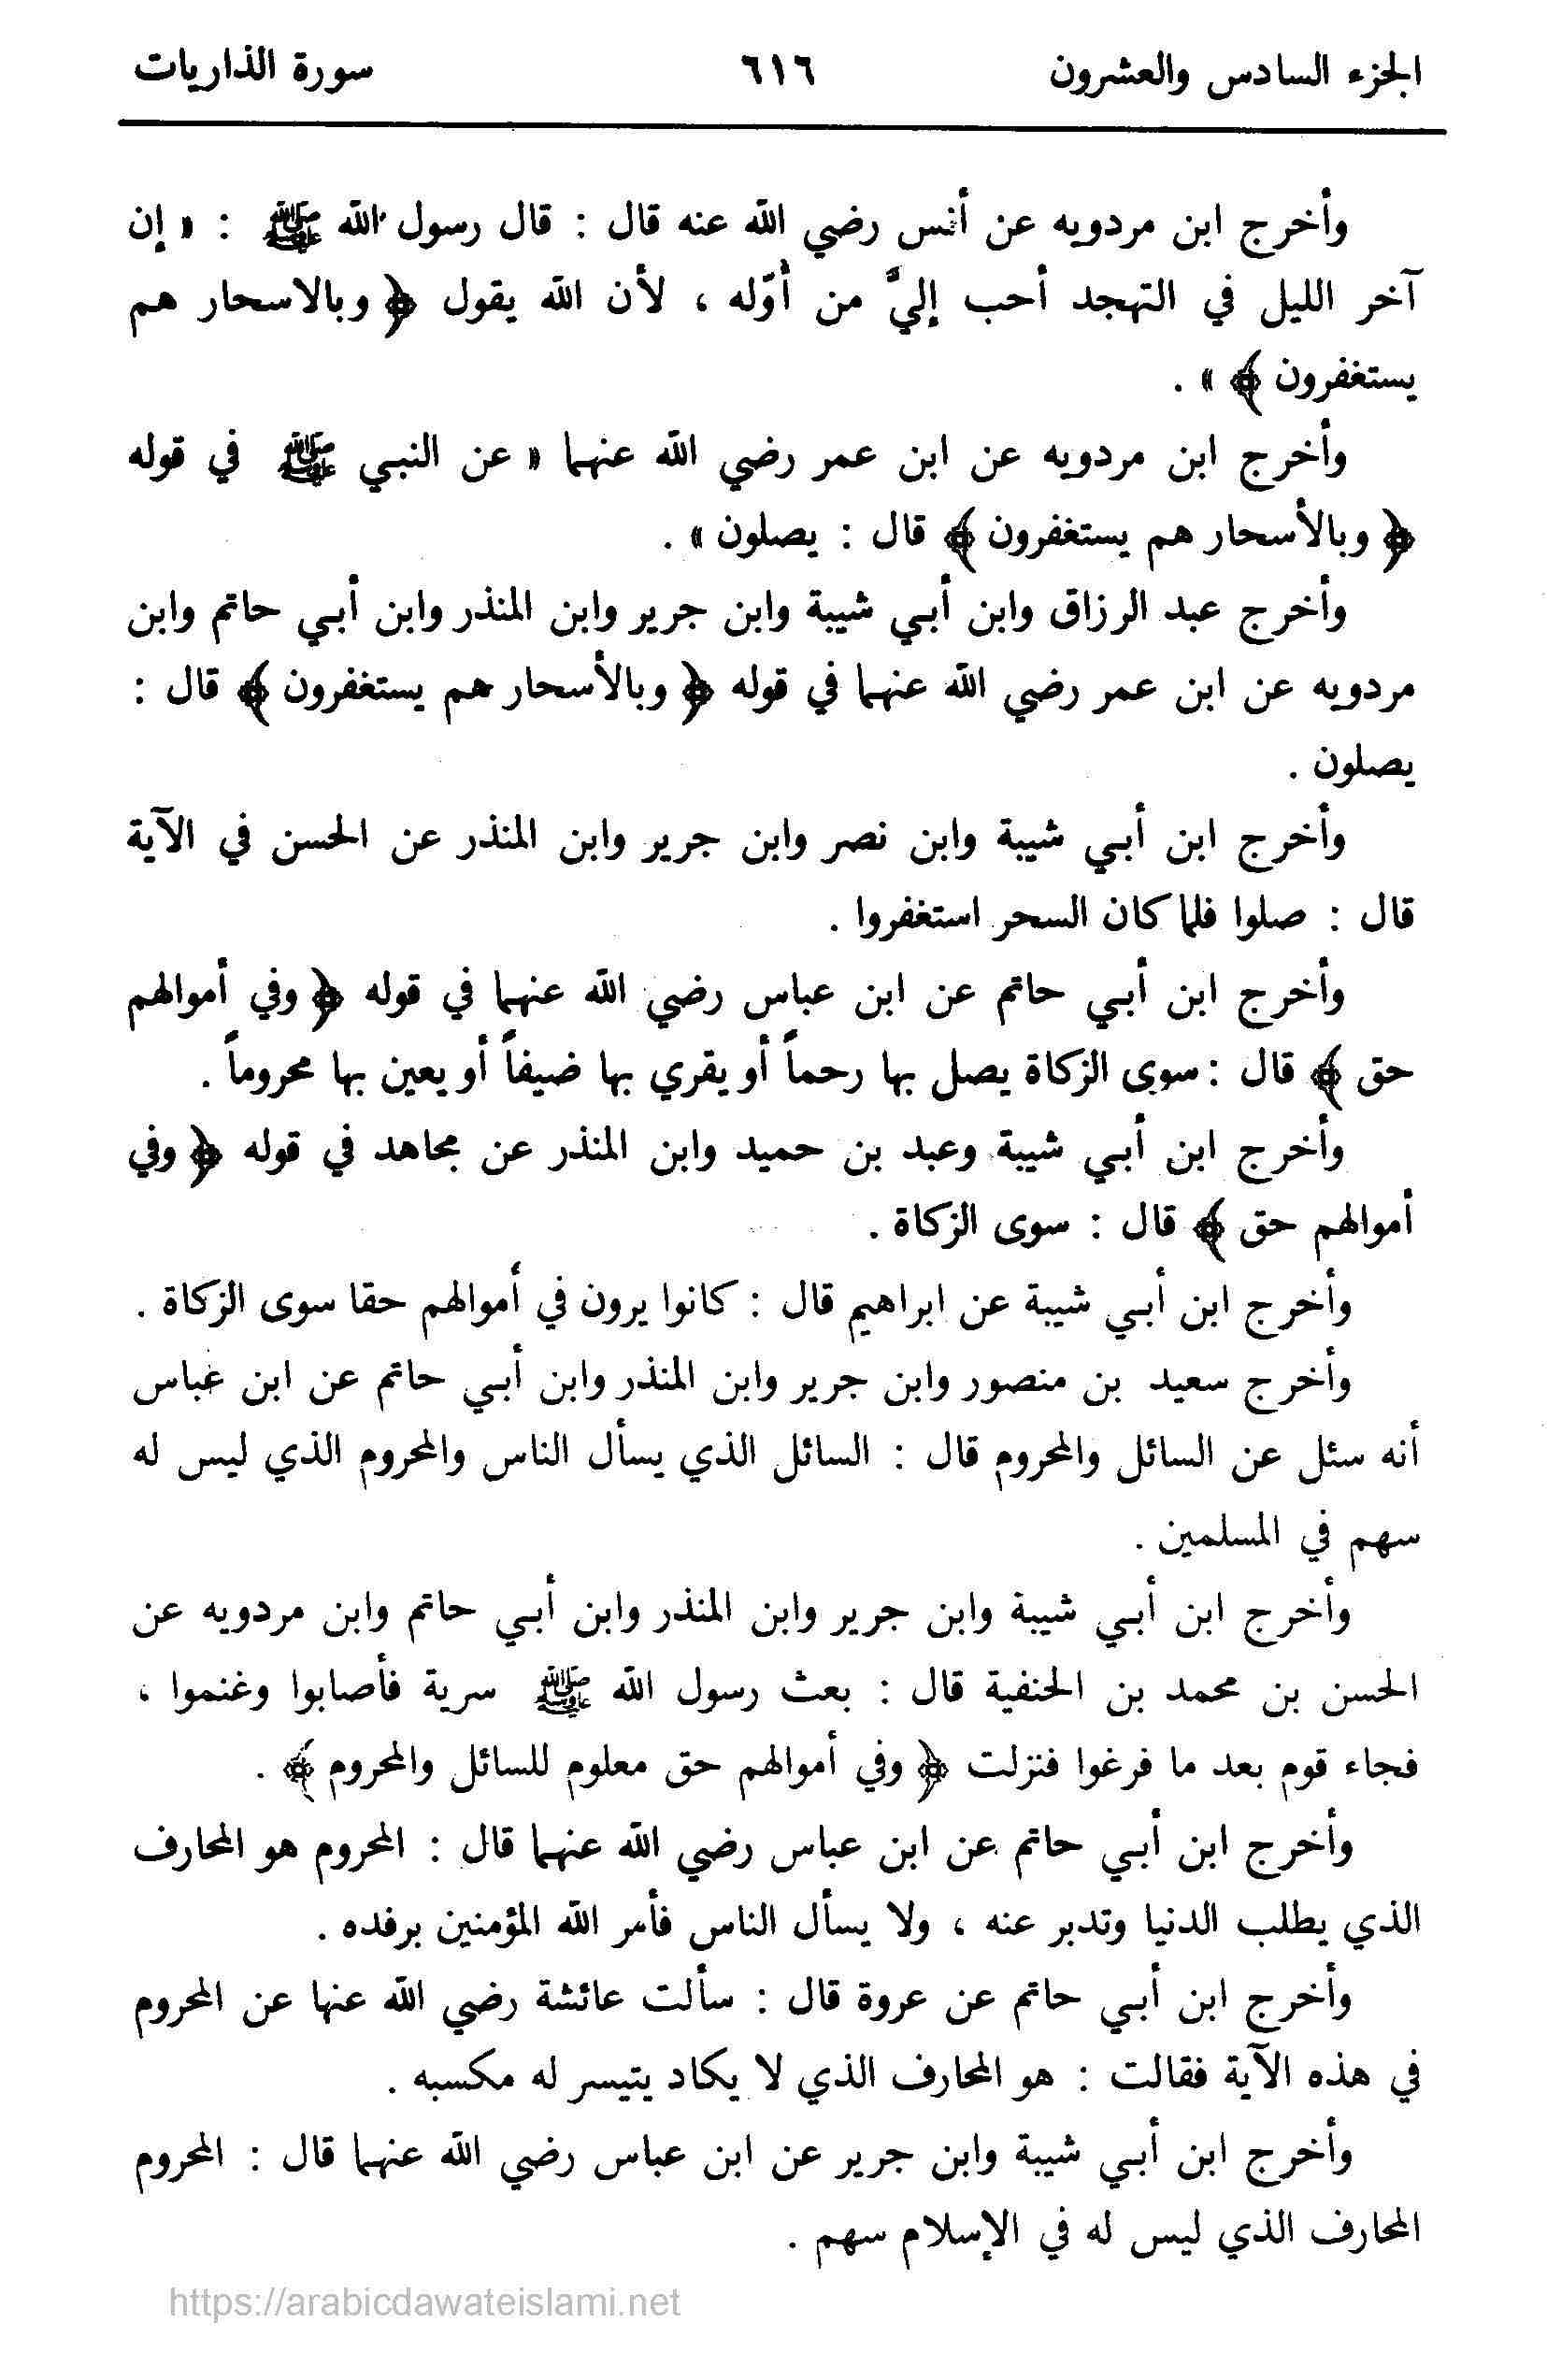 الجزء السادس والعشرون ٦١٦ سورة الذاريات
وأخرج ابن مردويه عن أنس رضي الله عنه قال : قال رسول الله ﷺ : « إن
آخر الليل في التهجد أحب إليَّ من أوّله ، لأن الله يقول ﴿ وبالاسحار هم
يستغفرون ﴾ » .
وأخرج ابن مردويه عن ابن عمر رضي الله عنهما « عن النبي ﷺ في قوله
﴿ وبالأسحار هم يستغفرون ﴾ قال : يصلون » .
وأخرج عبد الرزاق وابن أبي شيبة وابن جرير وابن المنذر وابن أبي حاتم وابن
مردويه عن ابن عمر رضي الله عنهما في قوله ﴿ وبالأسحار هم يستغفرون ﴾ قال :
يصلون .
وأخرج ابن أبي شيبة وابن نصر وابن جرير وابن المنذر عن الحسن في الآية
قال : صلوا فلما كان السحر استغفروا .
وأخرج ابن أبي حاتم عن ابن عباس رضي الله عنهما في قوله ﴿ وفي أموالهم
حق ﴾ قال : سوى الزكاة يصل بها رحماً أو يقري بها ضيفاً أو يعين بها محروماً .
وأخرج ابن أبي شيبة وعبد بن حميد وابن المنذر عن مجاهد في قوله ﴿ وفي
أموالهم حق ﴾ قال : سوى الزكاة .
وأخرج ابن أبي شيبة عن ابراهيم قال : كانوا يرون في أموالهم حقا سوى الزكاة .
وأخرج سعيد بن منصور وابن جرير وابن المنذر وابن أبي حاتم عن ابن عباس
أنه سئل عن السائل والمحروم قال : السائل الذي يسأل الناس والمحروم الذي ليس له
سهم في المسلمين .
وأخرج ابن أبي شيبة وابن جرير وابن المنذر وابن أبي حاتم وابن مردويه عن
الحسن بن محمد بن الحنفية قال : بعث رسول الله ﷺ سرية فأصابوا وغنموا ،
فجاء قوم بعد ما فرغوا فنزلت ﴿ وفي أموالهم حق معلوم للسائل والمحروم ﴾ .
وأخرج ابن أبي حاتم عن ابن عباس رضي الله عنهما قال : المحروم هو المحارف
الذي يطلب الدنيا وتدبر عنه ، ولا يسأل الناس فأمر الله المؤمنين برفده .
وأخرج ابن أبي حاتم عن عروة قال : سألت عائشة رضي الله عنها عن المحروم
في هذه الآية فقالت : هو المحارف الذي لا يكاد يتيسر له مكسبه .
وأخرج ابن أبي شيبة وابن جرير عن ابن عباس رضي الله عنهما قال : المحروم
المحارف الذي ليس له في الإسلام سهم .
https://arabicdawateislami.net